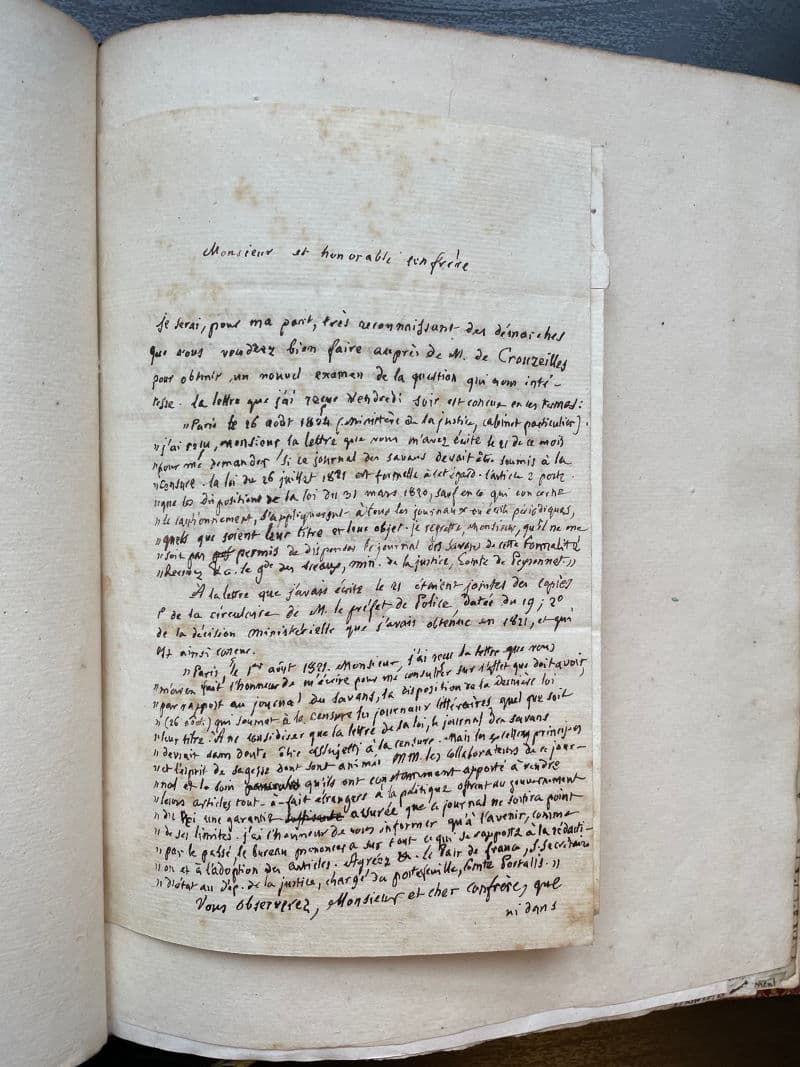 Monsieur et honorable confrère
je serai, pour ma part, très reconnaissant des démarches
que vous voudrez bien faire auprès de M. de Crouzeilles
pour obtenir un nouvel examen de la question qui nous inté-
resse. la lettre que j'ai reçue vendredi soir est conçue en ces termes:
"Paris le 26 août 1824 (ministère de la justice, cabinet particulier).
"j'ai reçu, monsieur la lettre que vous m'avez écrite le 21 de ce mois
"pour me demander si ce journal des savans devait être soumis à la
"censure. la loi du 26 juillet 1821 est formelle à cet égard. l'article 2 porte
"que les dispositions de la loi du 31 mars 1820, sauf en ce qui concerne
"le cautionnement, s'appliqueront à tous les journaux ou écrits périodiques,
"quels que soient leur titre et leur objet. je regrette, Monsieur, qu'il ne me
"soit pas permis de dispenser le journal des Savans de cette formalité
"Recevez &c. le gde des sceaux, min. de la justice, Comte de Peyronnet."
A la lettre que j'avais écrite le 21 étaient jointes des copies
1° de la circulaire de M. le préfet de Police, datée du 19; 2°
de la décision ministérielle que j'avais obtenue en 1821, et qui
est ainsi conçue.
"Paris, le 1er août 1821. Monsieur, j'ai reçu la lettre que vous
"m'avez fait l'honneur de m'écrire pour me consulter sur l'effet que doit avoir,
"par rapport au journal des savans, la disposition de la dernière loi
"(26 ) qui soumet à la censure les journaux littéraires quel que soit
"leur titre. A ne considérer que la lettre de la loi, le journal des savans
"devrait sans doute être assujetti à la censure. Mais les excellens principes
"et l'esprit de sagesse dont sont animés MM. les Collaborateurs de ce jour-
"nal et le soin qu'ils ont constamment apporté à rendre
"leurs articles tout-à-fait étrangers à la politique offrent au gouvernement
"du Roi une garantie suffisante assurée que ce journal ne sortira point
"de ses limites. j'ai l'honneur de vous informer qu'à l'avenir, comme
"par le passé, le bureau prononcera sur tout ce qui se rapporte à la rédacti-
"on et à l'adoption des articles. Agréez &c. le Pair de france, s. Secrétaire
"d'état au dép. de la justice, chargé du portefeuille, Comte Portalis."
Vous observerez, Monsieur et cher confrère, que
ni dans